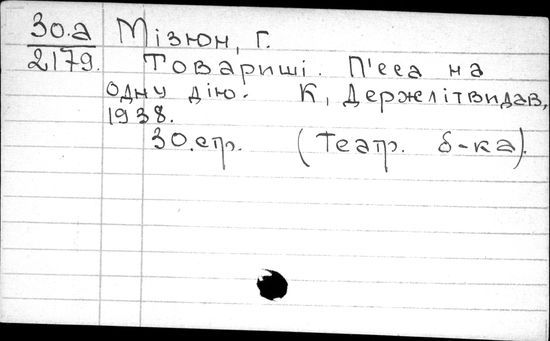 30.а Мізюн, Г.
2179. Товариші. П'єса на
одну дію. К, Держлітвидав,
1938.
30.стр. (Театр. б-ка).